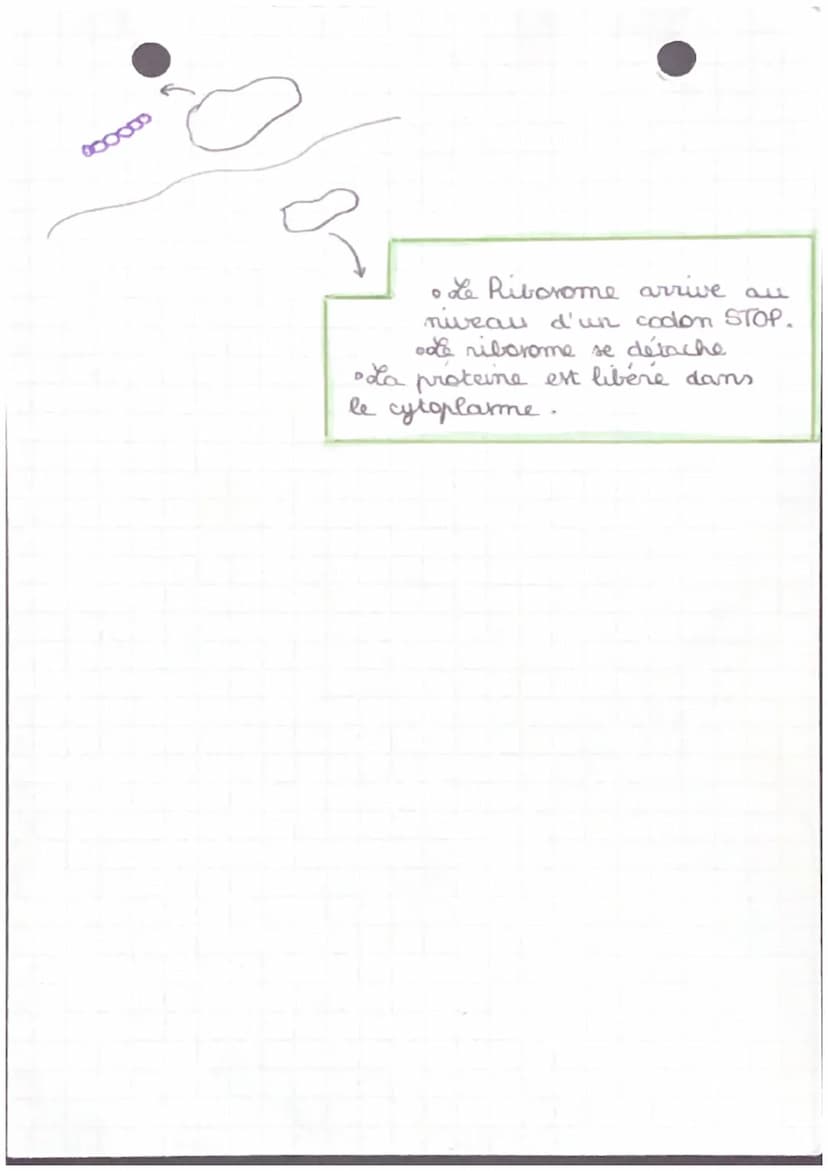 • Le Ribosome arrive au
niveau d'un codon STOP.
• Le ribosome se détache
• La protéine est libéré dans
le cytoplasme.